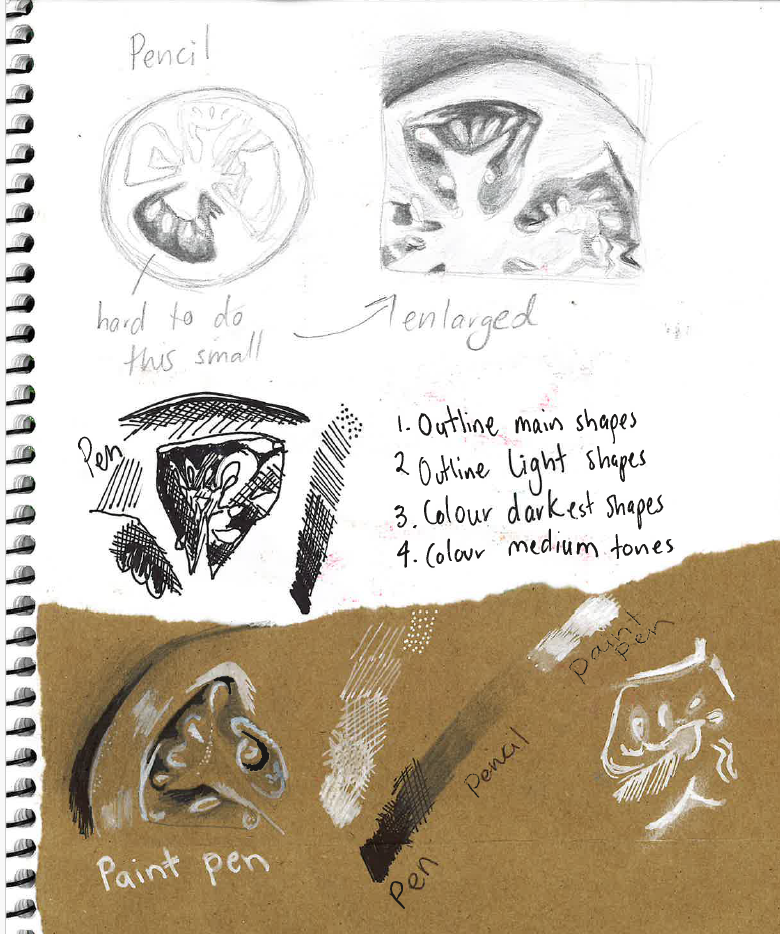 Pencil
hard to do
this small
enlarged
Pen
1. Outline main shapes
2 Outline light shapes
3. Colour darkest shapes
4. Colour medium tones
paint
pen
Pencil
Pen
Paint pen